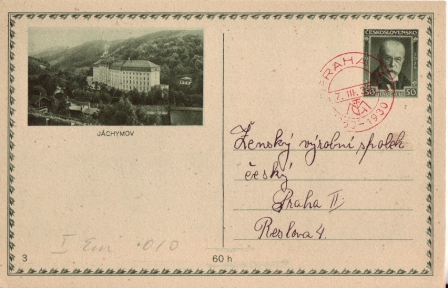 ČESKOSLOVENSKO
50 50
PRAHA
7. III. 3
1930
JÁCHYMOV
Ženský výrobní spolek
český
Praha II
Reslova 4.
3
60 h